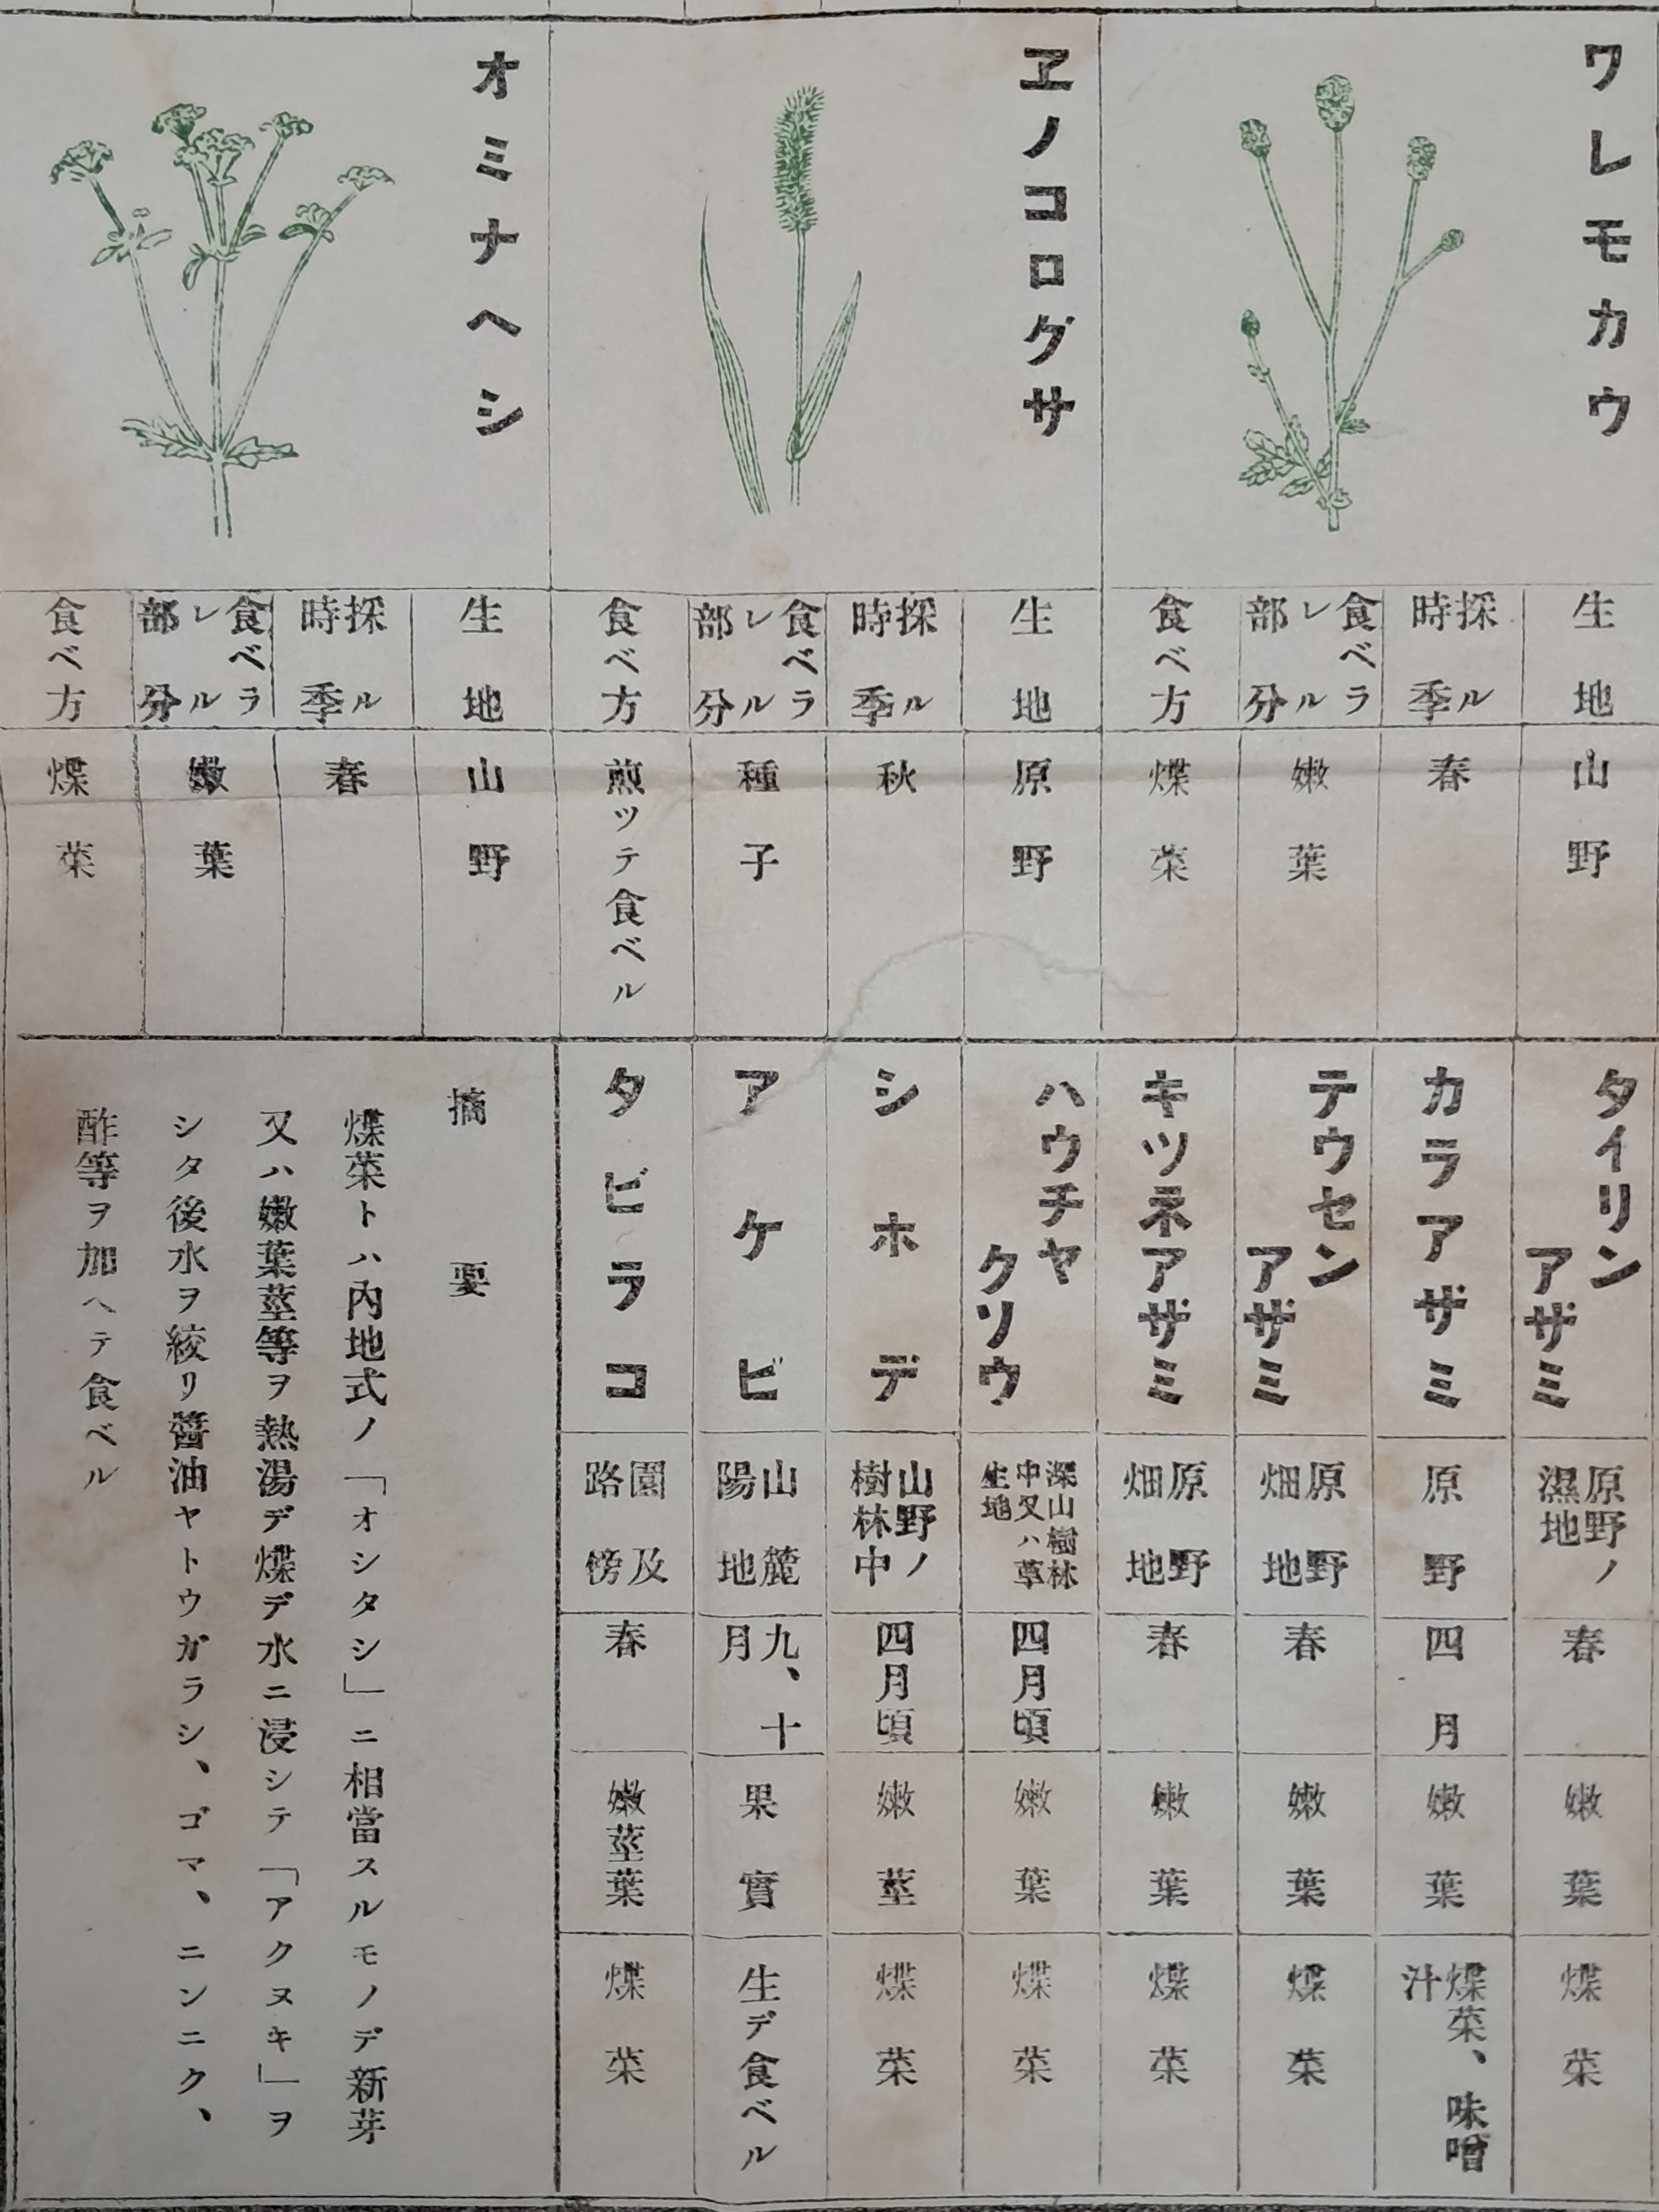 ワレモカウ
生地
山野
採ル
時季
春
食ベラ
レル
部分
嫩葉
食ベ方
煠菜
ヱノコログサ
生地
原野
採ル
時季
秋
食ベラ
レル
部分
種子
食ベ方
煎ツテ食ベル
オミナヘシ
生地
山野
採ル
時季
春
食ベラ
レル
部分
嫩葉
食ベ方
煠菜
タイリン
アザミ
原野ノ
濕地
春
嫩葉
煠菜
カラアザミ
原野
四月
嫩葉
煠菜、味噌
汁
テウセン
アザミ
原野
畑地
春
嫩葉
煠菜
キツネアザミ
原野
畑地
春
嫩葉
煠菜
ハウチヤ
クソウ
深山樹林
中又ハ草
生地
四月頃
嫩葉
煠菜
シホデ
山野ノ
樹林中
四月頃
嫩莖
煠菜
アケビ
山麓
陽地
九、十
月
果實
生デ食ベル
タビラコ
園及
路傍
春
嫩莖葉
煠菜
摘要
煠菜トハ內地式ノ「オシタシ」ニ相當スルモノデ新芽
又ハ嫩葉莖等ヲ熱湯デ煠デ水ニ浸シテ「アクヌキ」ヲ
シタ後水ヲ絞リ醬油ヤトウガラシ、ゴマ、ニンニク、
酢等ヲ加ヘテ食ベル